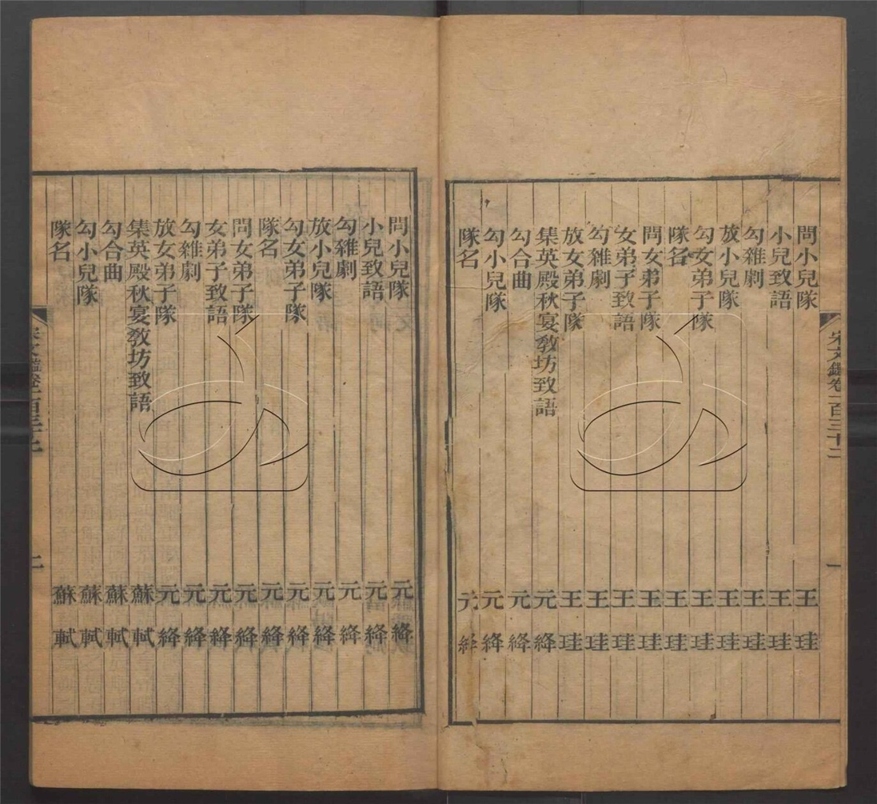 問小兒隊 王珪
小兒致語 王珪
勾雜劇 王珪
放小兒隊 王珪
勾女弟子隊 王珪
隊名 王珪
問女弟子隊 王珪
女弟子致語 王珪
勾雜劇 王珪
放女弟子隊 王珪
集英殿秋宴敎坊致語 元絳
勾合曲 元絳
勾小兒隊 元絳
隊名 元絳
宋文鑑卷一百三十二 一
問小兒隊 元絳
小兒致語 元絳
勾雜劇 元絳
放小兒隊 元絳
勾女弟子隊 元絳
隊名 元絳
問女弟子隊 元絳
女弟子致語 元絳
勾雜劇 元絳
放女弟子隊 元絳
集英殿秋宴敎坊致語 蘇軾
勾合曲 蘇軾
勾小兒隊 蘇軾
隊名 蘇軾
宋文鑑卷一百三十二 二